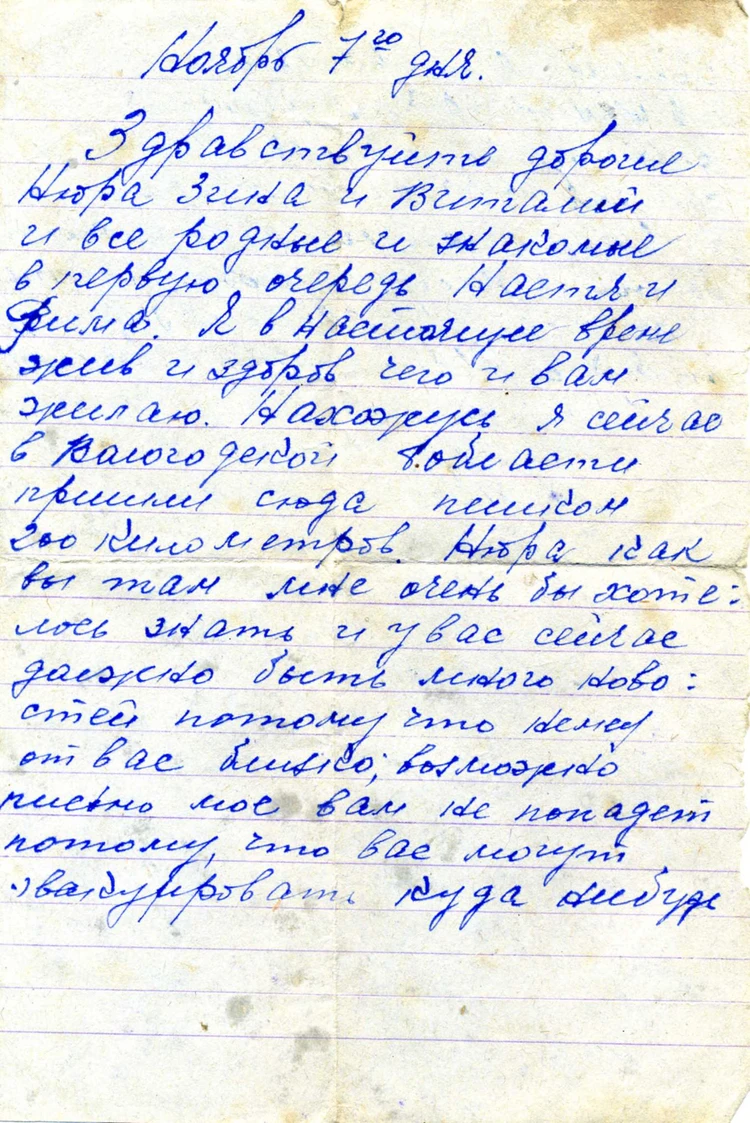 Ноябрь 7го дня.
Здравствуйте дорогие
Нюра Зина и Виталий
и все родные и знакомые
в первую очередь Настя и
Фима. Я в настоящее время
жив и здоров чего и вам
жилаю. Нахожусь я сейчас
в Вологодской области
пришли сюда пешком
200 километров. Нюра как
вы там мне очень бы хоте:
лось знать и у вас сейчас
должно быть много ново:
стей потому что
от вас близко, возможно
письмо мое вам не попадет
потому, что вас могут
эвакуировать куда нибудь